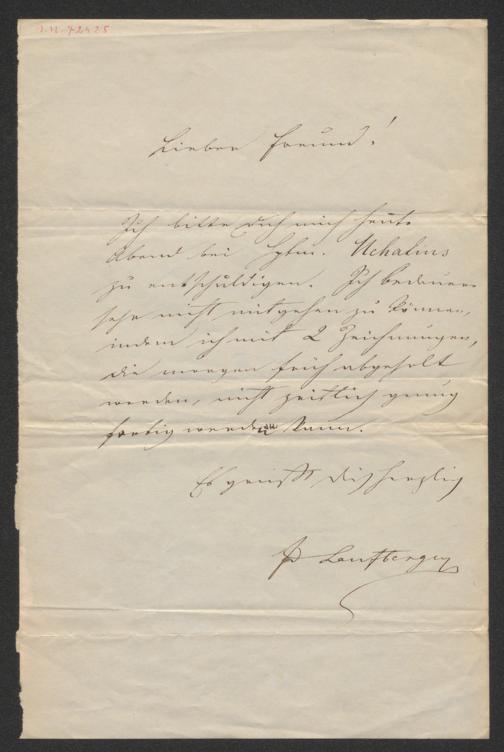 I.N. 72425
Lieber Freund!
Ich bitte dich mich heute
Abend bei Hptm. Uchatius
zu entschuldigen. Ich bedauere
sehr nicht mitgehen zu können,
indem ich mit 2 Zeichnungen,
die morgen früh abgeholt
werden, nicht zeitlich genug
fertig werden kann.
Es grüßt dich herzlich
Laufberger